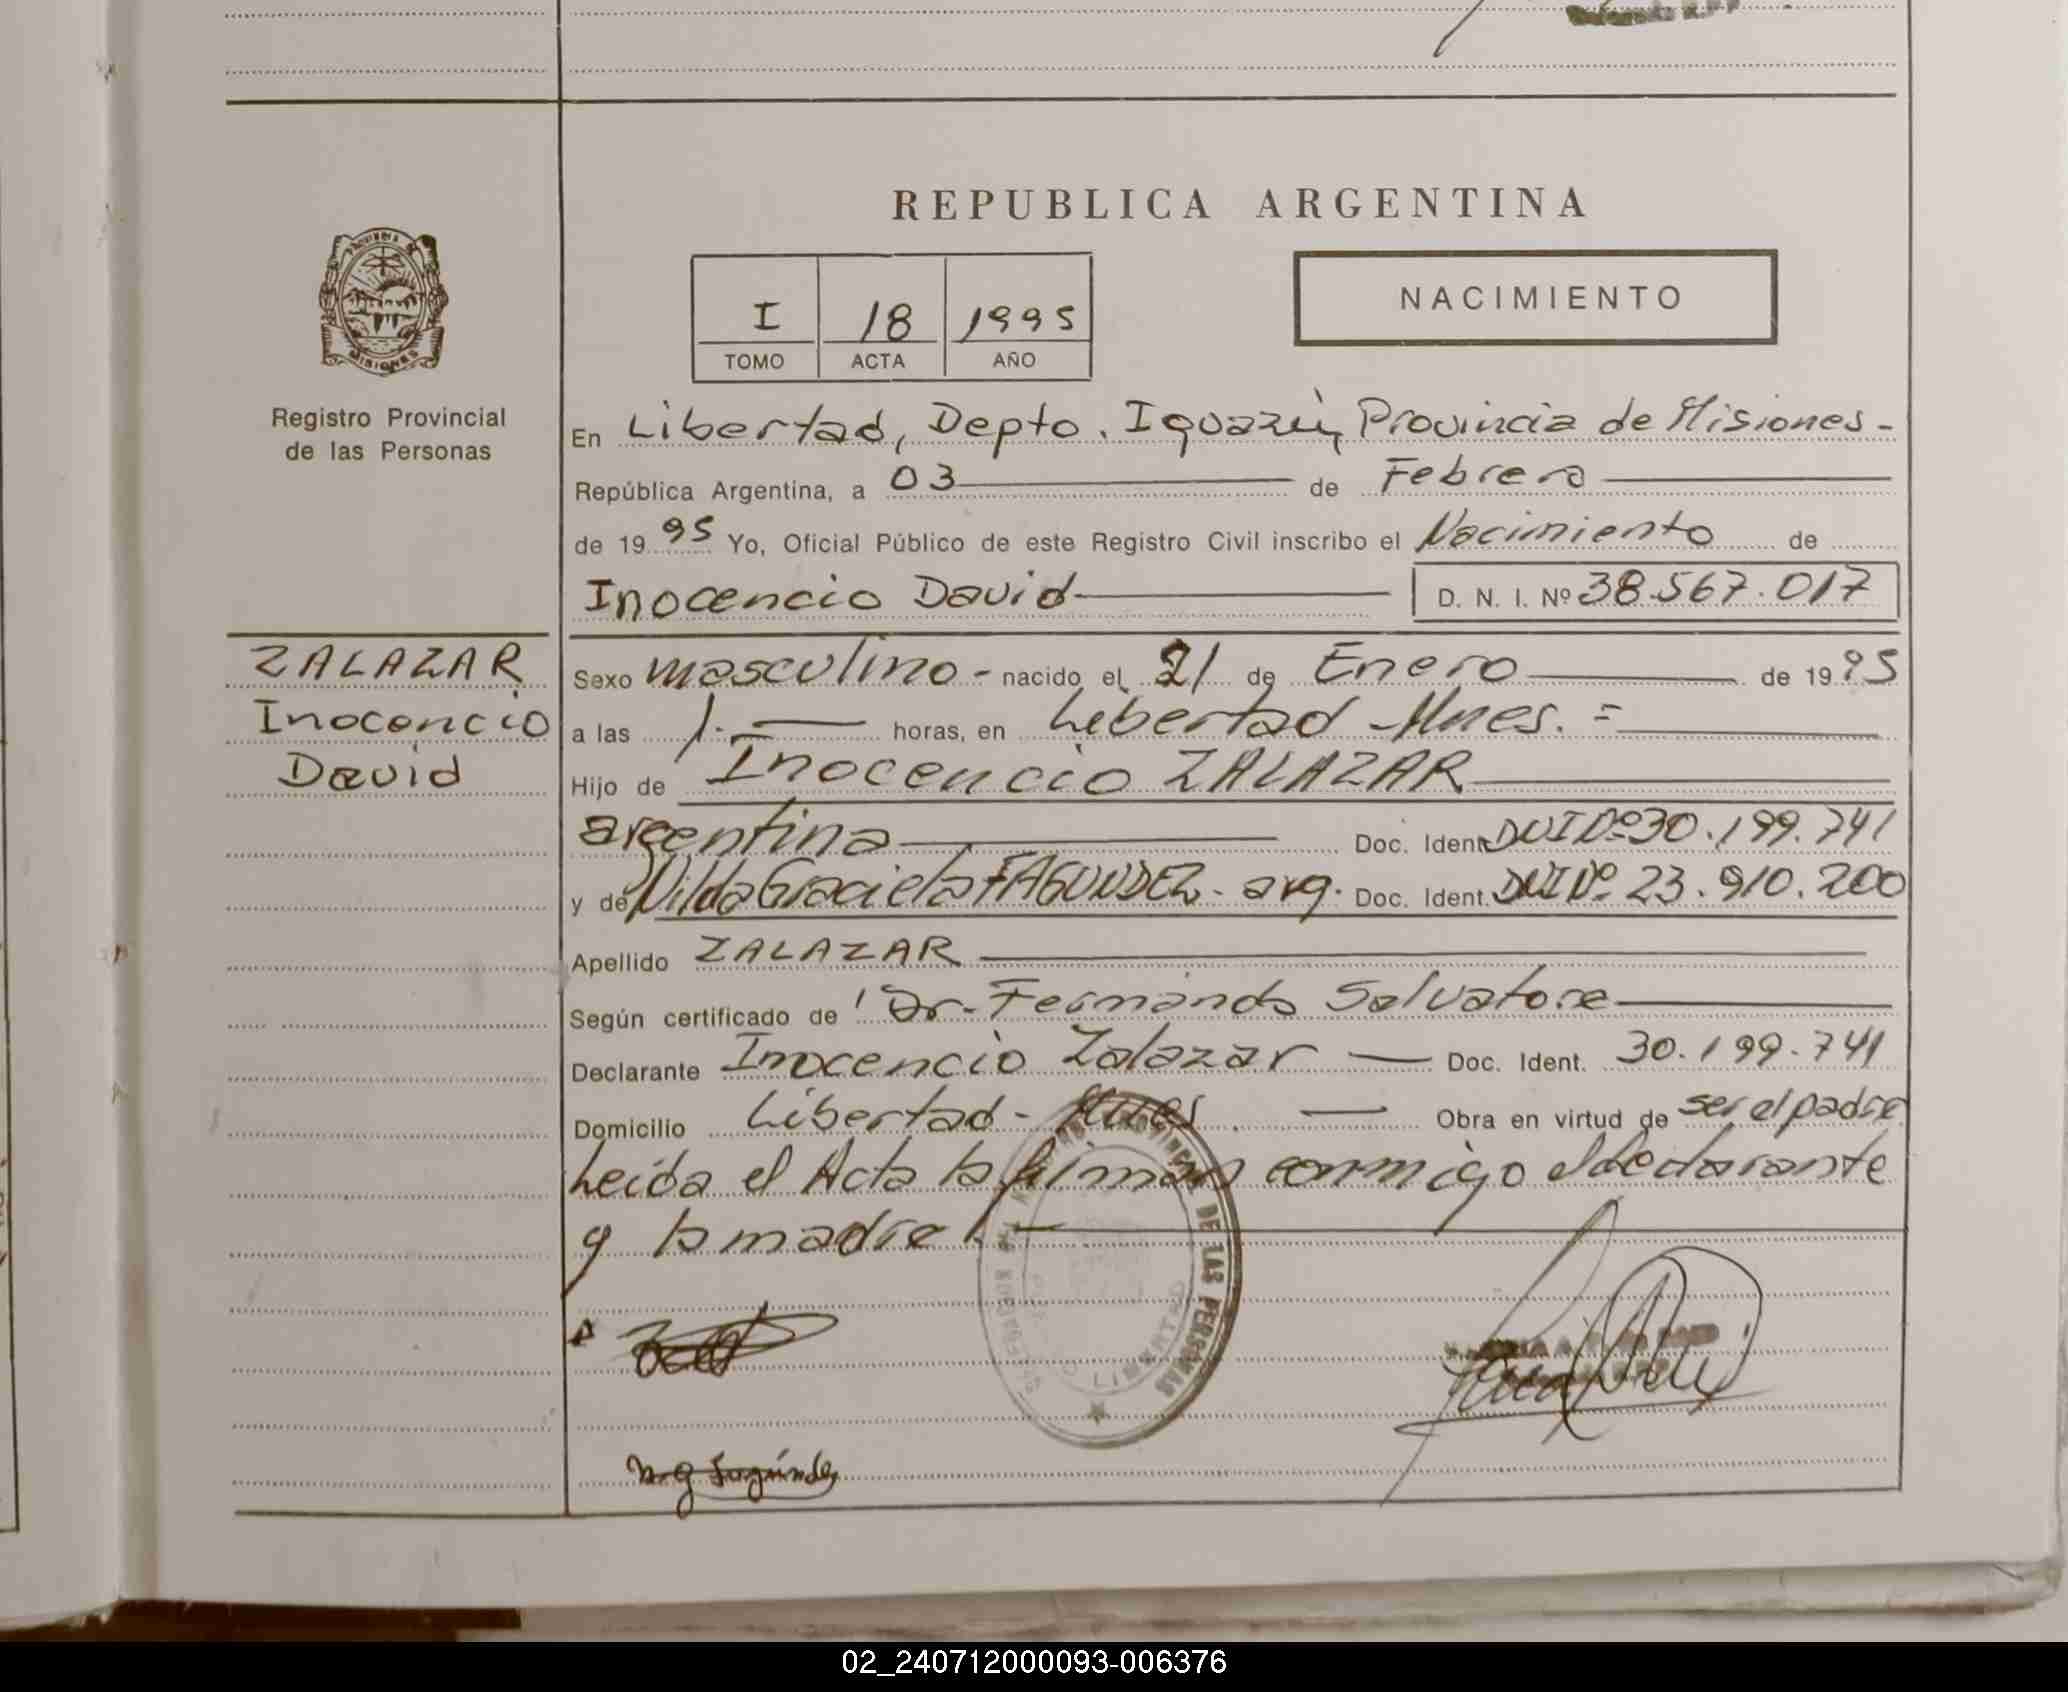 REPUBLICA ARGENTINA
I 18 1995
TOMO ACTA AÑO
NACIMIENTO
PROVINCIA DE
MISIONES
Registro Provincial
de las Personas
En Libertad, Depto. Iguazú, Provincia de Misiones-
República Argentina, a 03 de Febrero
de 1995 Yo, Oficial Público de este Registro Civil inscribo el Nacimiento de
Inocencio David D. N. I. Nº 38.567.017
ZALAZAR
Inocencio
David
Sexo masculino - nacido el 21 de Enero de 1995
a las 1.- horas, en Libertad - Mnes. =
Hijo de Inocencio ZALAZAR
argentina Doc. Ident. DNI Nº 30.199.741
y de Nilda Graciela FAGUNDEZ - arg. Doc. Ident. DNI Nº 23.910.200
Apellido ZALAZAR
Según certificado de Dr. Fernando Salvatore
Declarante Inocencio Zalazar Doc. Ident. 30.199.741
Domicilio Libertad - Mnes. Obra en virtud de ser el padre
Leída el Acta la firman conmigo el declarante
y la madre.
DE LAS PERSONAS
LIBERTAD
N.g Fagúndez
02_240712000093-006376